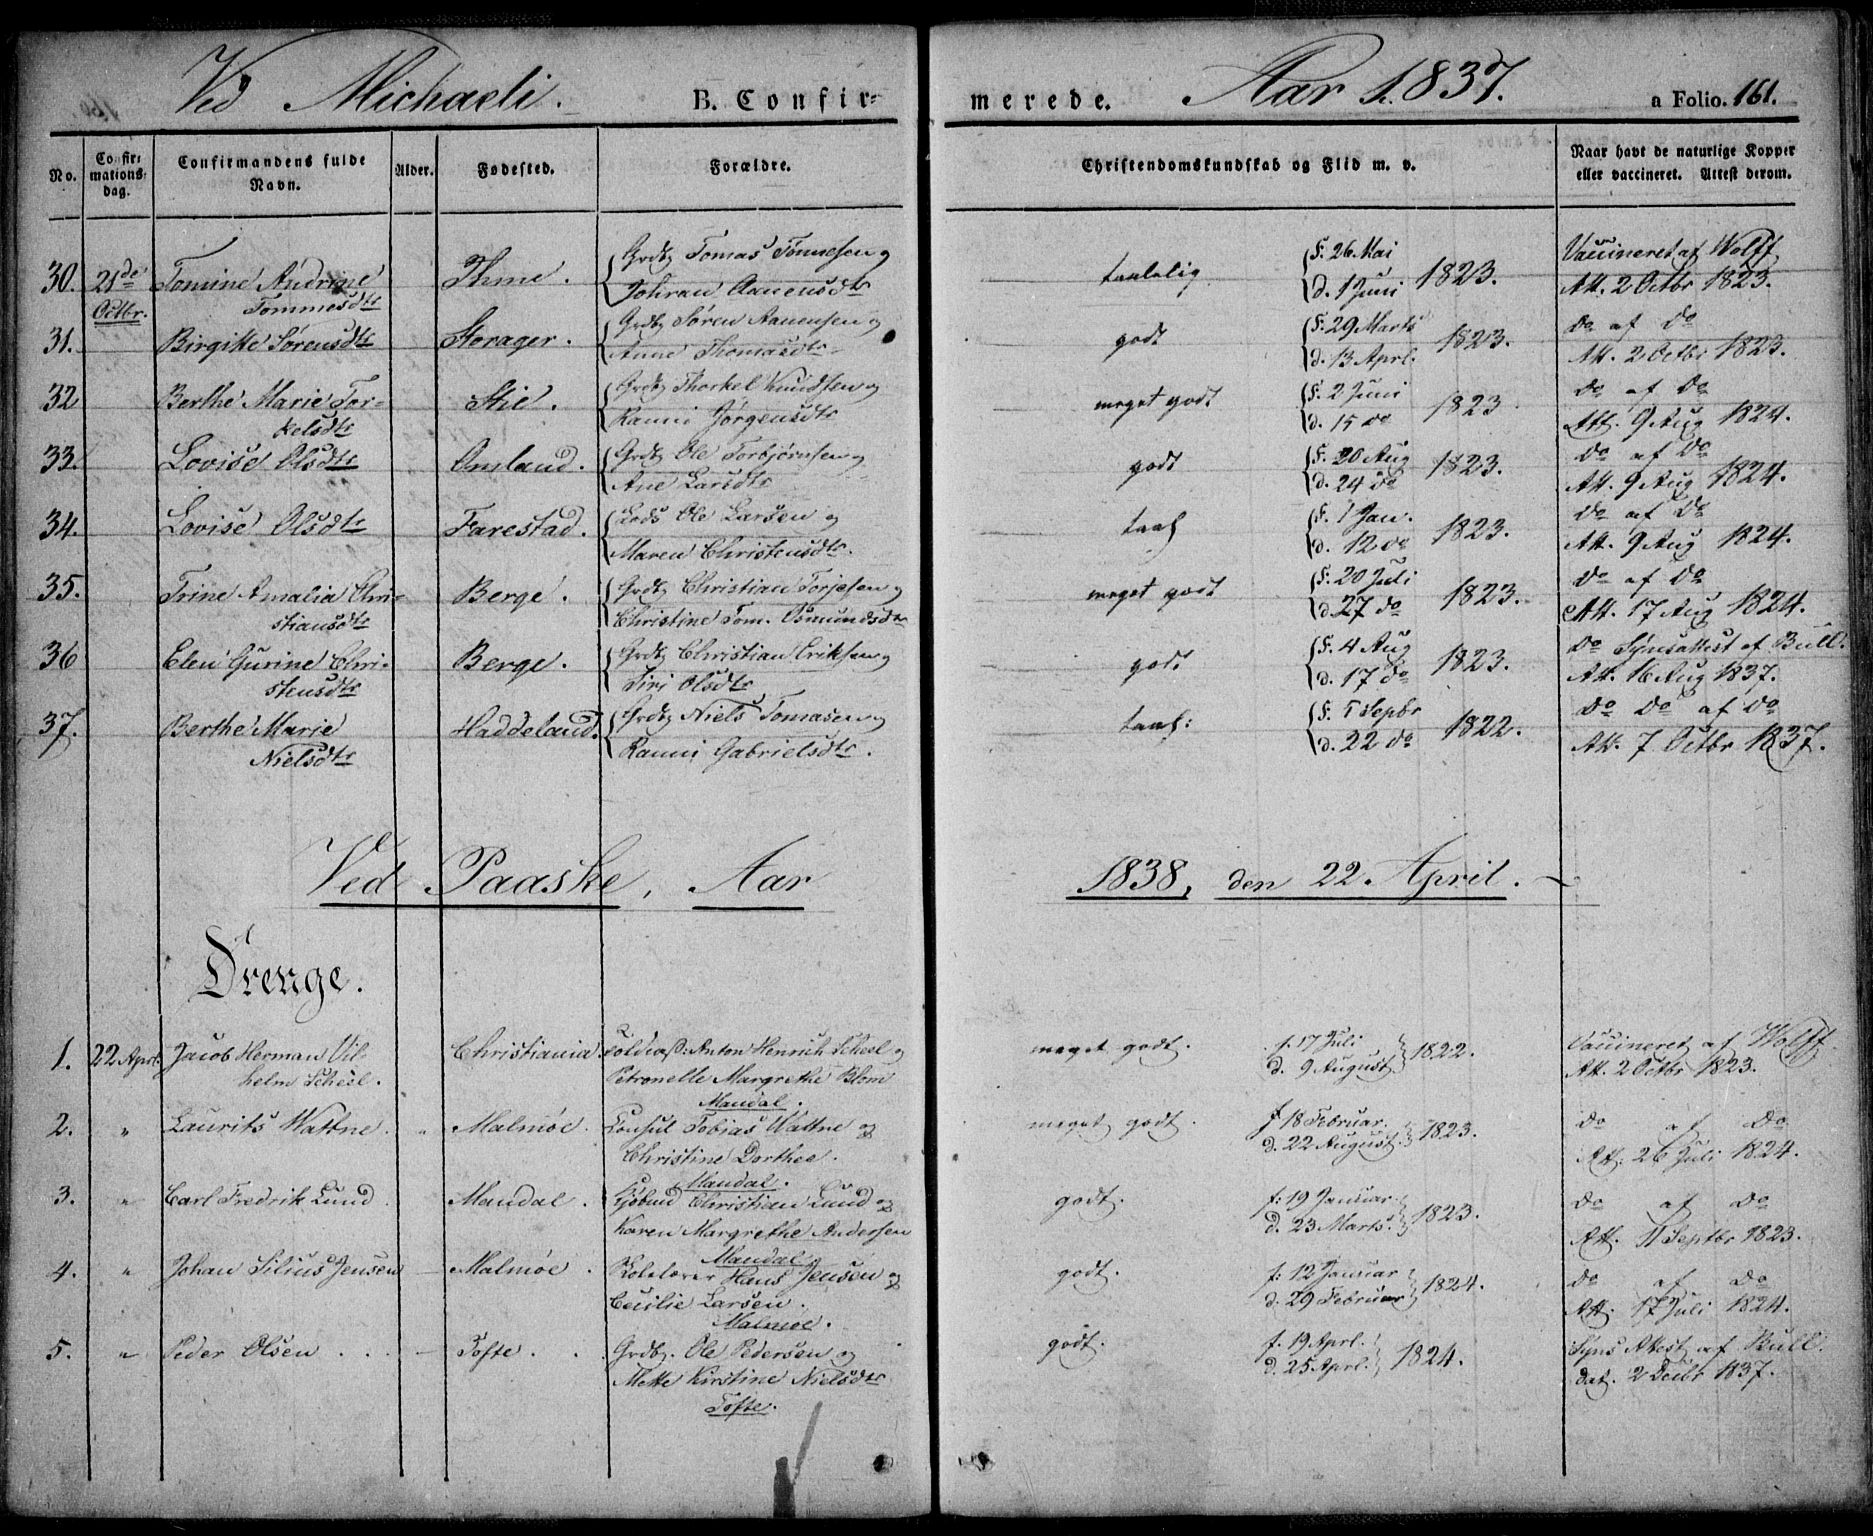 Ved Michaeli. B. Confir= merede. Aar 1837. a Folio. 161.
No. Confir= mations= dag. Confirmandens fulde Navn. Alder. Fødested. Forældre. Christendomskundskab og Flid m. v. Naar havt de naturlige Kopper eller vaccineret. Attest derom.
30. 21de Tomine Andrine Ihme. Grdbg Tomas Tønnesen og taalelig f. 26 Mai 1823. Vaccineret af Wolff
Octbr. Tommesdtr Johran Aanensdtr d. 1 Juni Att. 2 Octbr 1823.
31. Birgitte Sørensdtr Storager. Grdbg Søren Aanensen og godt f. 29 Marts 1823. do af do
Anne Thomasdtr d. 13 Aprl. Att. 2 Octbr 1823.
32 Berthe Marie Tor- Stie. Grdbg Thorkel Knudsen og meget godt f. 2 Juni 1823 do af do
kelsdtr Ranni Jørgensdtr d. 15 do Att. 9 Aug 1824.
33. Lovise Olsdtr Omland. Grdbg Ole Torbjørnsen og godt f. 20 Aug 1823. do af do
Ane Larsdtr d. 24 do Att. 9 Aug 1824.
34. Lovise Olsdtr Farestad. Lods Ole Larsen og taal f. 1 Jan. 1823. do af do
Maren Christensdtr. d. 12 do Att. 9 Aug 1824.
35. Trine Amalia Chri- Berge. Grdbg Christian Torjesen og meget godt f. 20 Juli 1823. do af do
stiansdtr Christine Tom. Osmundsdtr d. 27 do Att. 17 Aug 1824.
36 Elen Gurine Chri- Berge. Grdbg Christian Eriksen og godt f. 4 Aug 1823. do Synsattest af Bull.
stensdtr Siri Olsdtr d. 17 do Att. 16 Aug 1837.
37. Berthe Marie Haddeland. Grdbg Niels Tomasen og taal: f. 1 Sepbr 1822. do do af do
Nielsdtr Ranni Gabrielsdtr. d. 22 do Att. 7 Octbr 1837.
Ved Paaske, Aar 1838, den 22. April.
Drenge.
1. 22 Aprl. Jacob Herman Vil- Christiania Toldcass: Anton Henrich Scheel og meget godt. f. 17 Juli 1822. Vaccineret af Wolff
helm Scheel. Petronelle Margrethe Blom d. 9 August Att. 2 Octbr 1823.
Mandal.
2. " Laurits Wattne. " Malmøe. Consul Tobias Wattne og meget godt. f 18 Februar. 1823. do af do
Christine Dorthee. d. 22 August. Att. 26 Juli 1824.
Mandal.
3. " Carl Fredrik Lund Mandal. Kjøbmd Christian Lund og godt. f: 19 Januar. 1823. do af do
Karen Margrethe Andersen d. 23 Marts. Att. 11 Septbr 1823.
Mandal
4. " Johan Silius Jensen Malmøe. Hans Jensen og godt. f: 12 Januar 1824. do af do
Cecilie Larsen. d. 29 Februar Att. 17 Juli 1824.
Malmøe.
5. " Peder Olsen Tofte. Grdbg. Ole Pedersen og godt. f. 19 Aprl. 1824. Syns Attest af Bull.
Mette Kirstine Nielsdtr d. 25 Aprl. dat. 2 Decbr 1837.
Tofte.